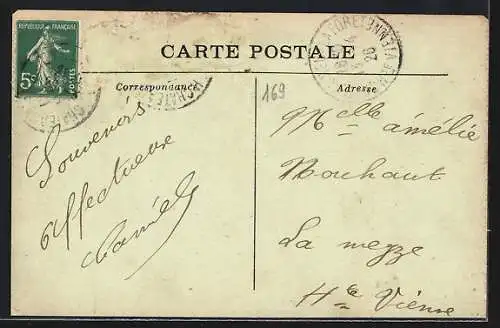 RÉPUBLIQUE FRANÇAISE
5c
POSTES
CARTE POSTALE
Correspondance
Adresse
169
Souvenirs
affectueux
Mlle amélie
Nouhaut
La
Hte Vienne